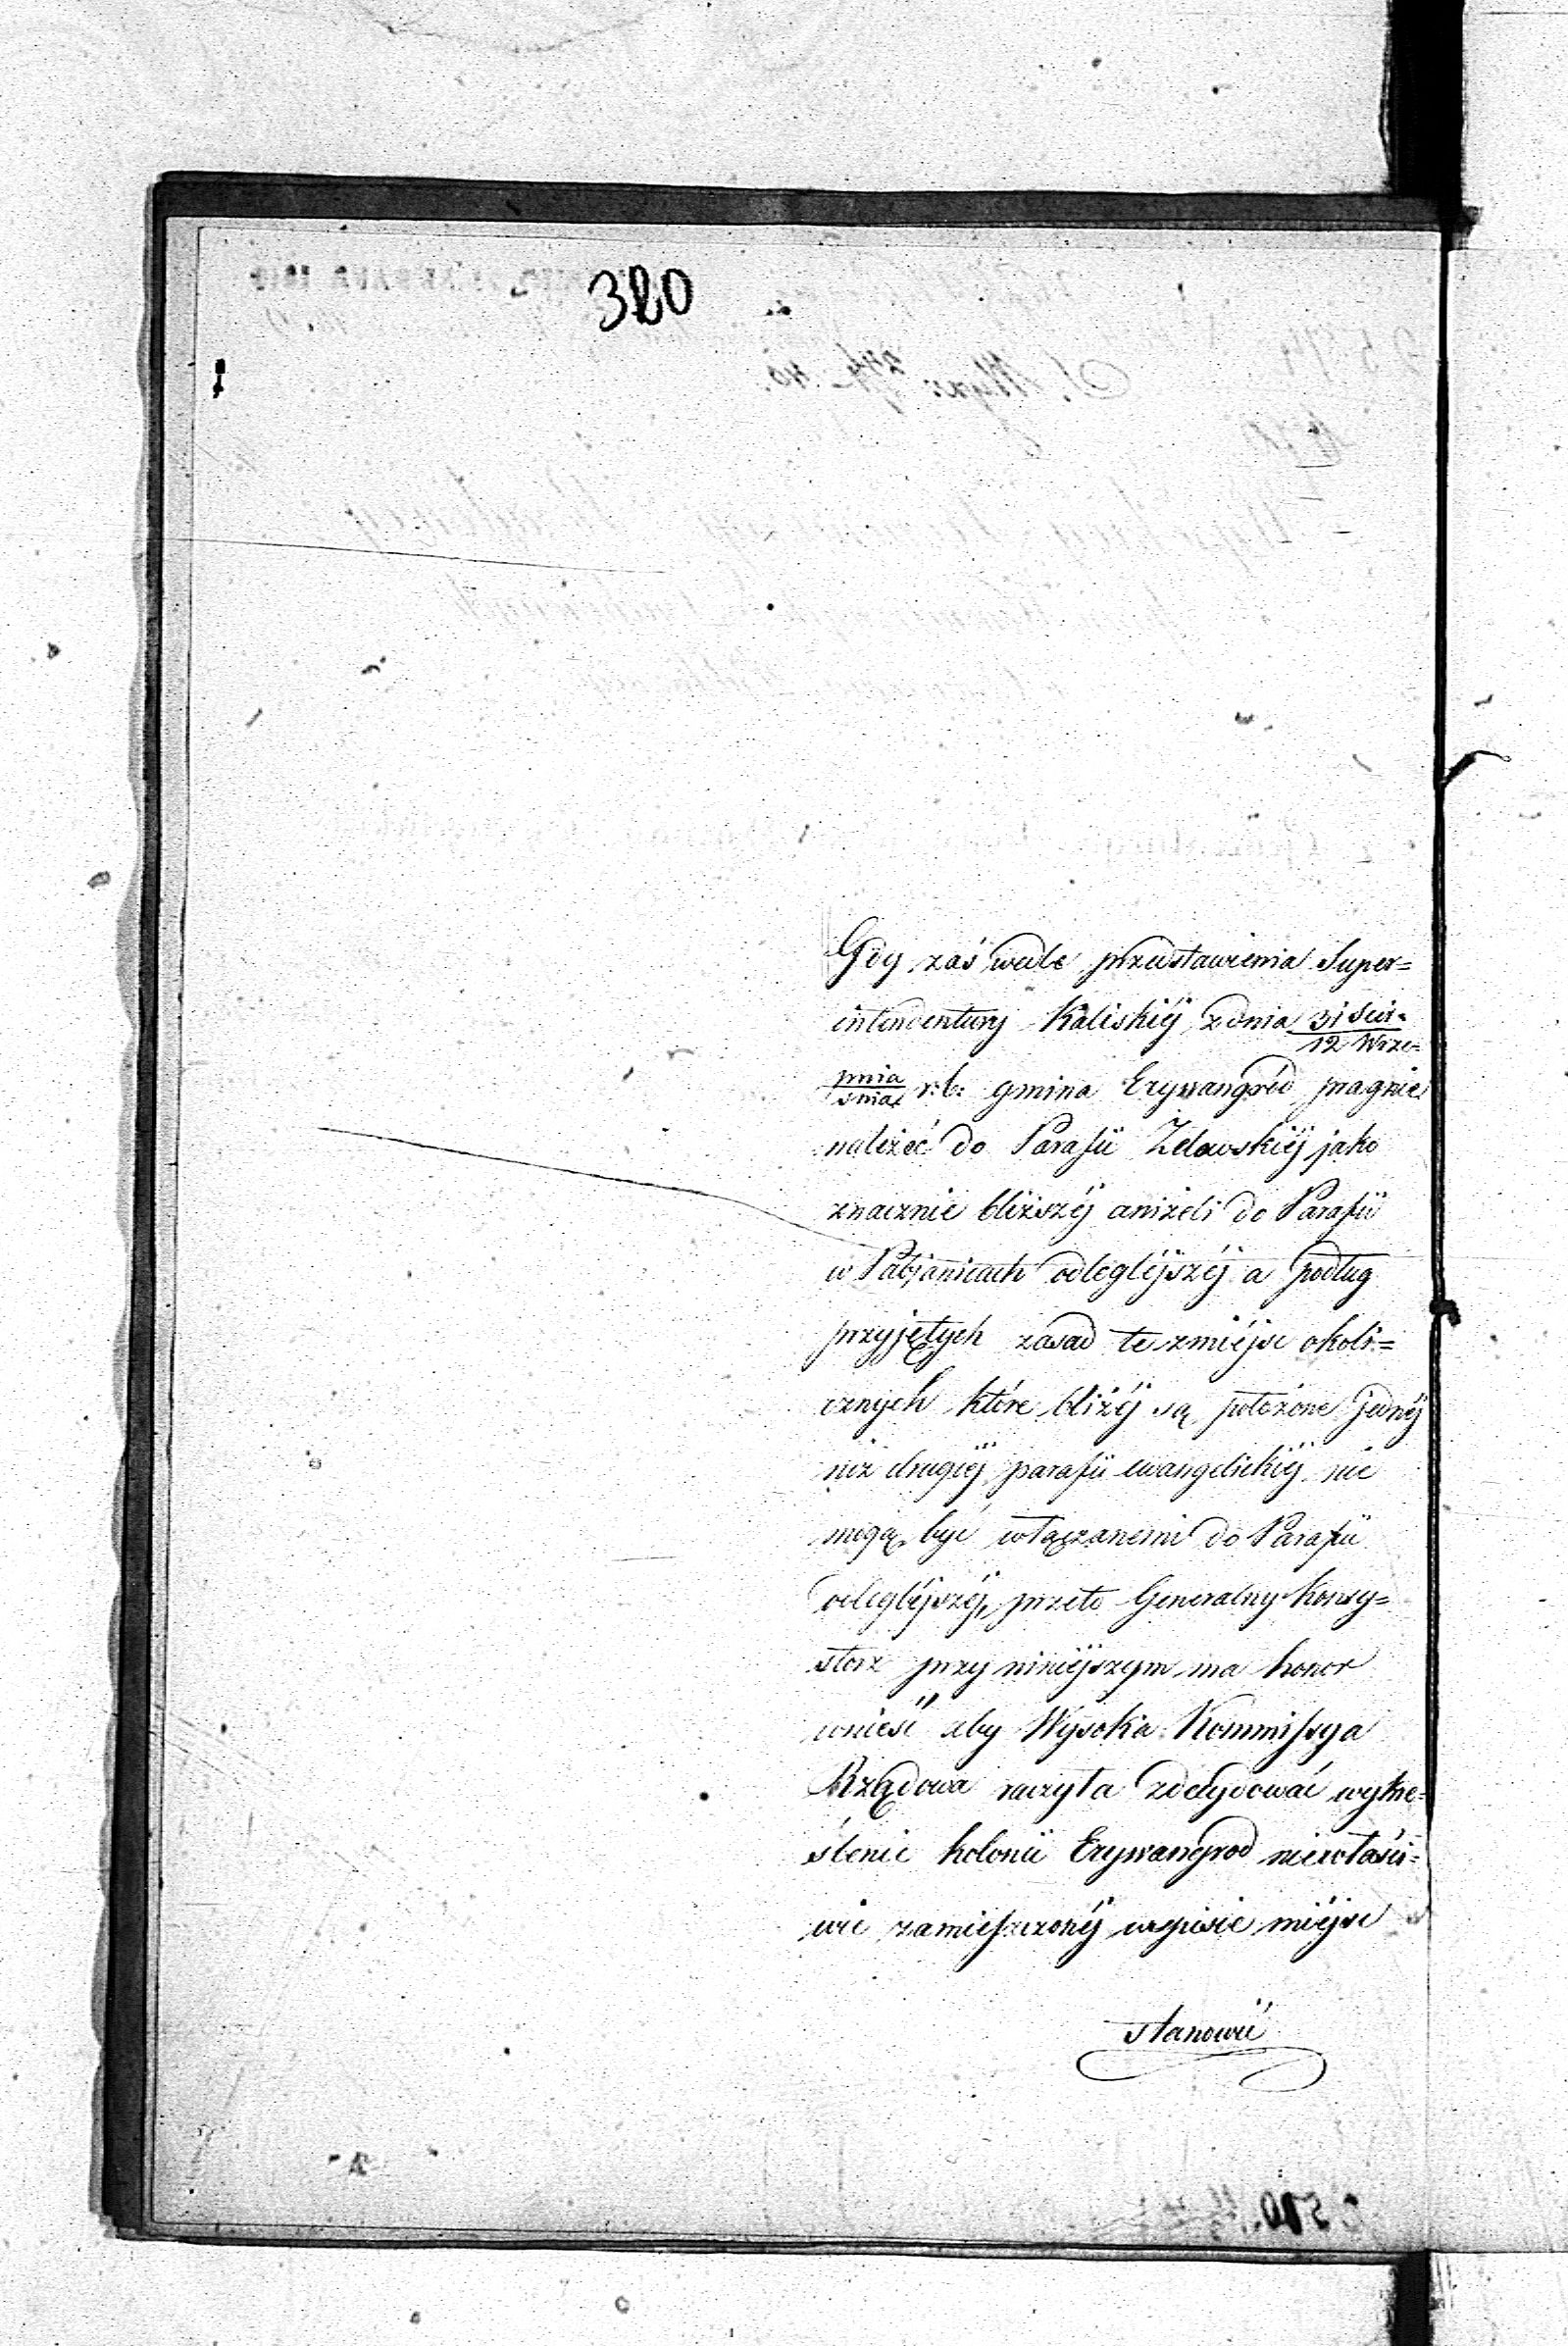 320
Gdy zaś wedle przedstawienia Super=
intendentury Kaliskiéj z dnia 31 Sier-/12 Wrze-
pnia/śnia r: b: gmina Erywangród pragnie
należeć do Parafii Zelowskiéj jako
znacznie bliższéj aniżeli do Parafii
w Pabjanicach odległéjszéj a podług
przyjętych zasad te z miéjsc okoli=
cznych które bliżéj są położone jednéj
niż drugiéj parafii ewangelickiéj nie
mogą być włączanemi do Parafii
odległéjszéj, przeto Generalny Konsy=
storz przy niniéjszym ma honor
wnieść aby Wysoka Kommissya
Rządowa raczyła zdecydować wykre=
ślenie kolonii Erywangrod niewłaści=
wie zamieszczonéj w spisie miéjsc
stanowić